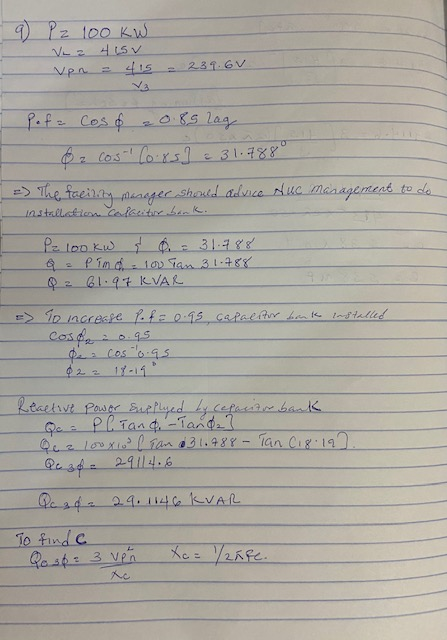 9) P = 100 KW
VL = 415V
Vpn = 415/√3 = 239.6V
P.f = cos φ = 0.85 lag
φ = cos⁻¹ [0.85] = 31.788°
=> The facility manager should advice NUC management to do
installation capacitor bank.
P = 100 KW & φ₁ = 31.788
Q = P Tan φ₁ = 100 Tan 31.788
Q = 61.97 KVAR
=> To increase P.f = 0.95, capacitor bank installed
cos φ₂ = 0.95
φ₂ = cos⁻¹ 0.95
φ2 = 18.19°
Reactive power supplyed by capacitor bank
Qc = P[Tan φ₁ - Tan φ₂]
Qc = 100x10³ [Tan 31.988 - Tan (18.19].
Qc 3φ = 29114.6
Qc 3φ = 29.1146 KVAR
To find C
Qc 3φ = 3 Vpn²/Xc Xc = 1/2πfc.